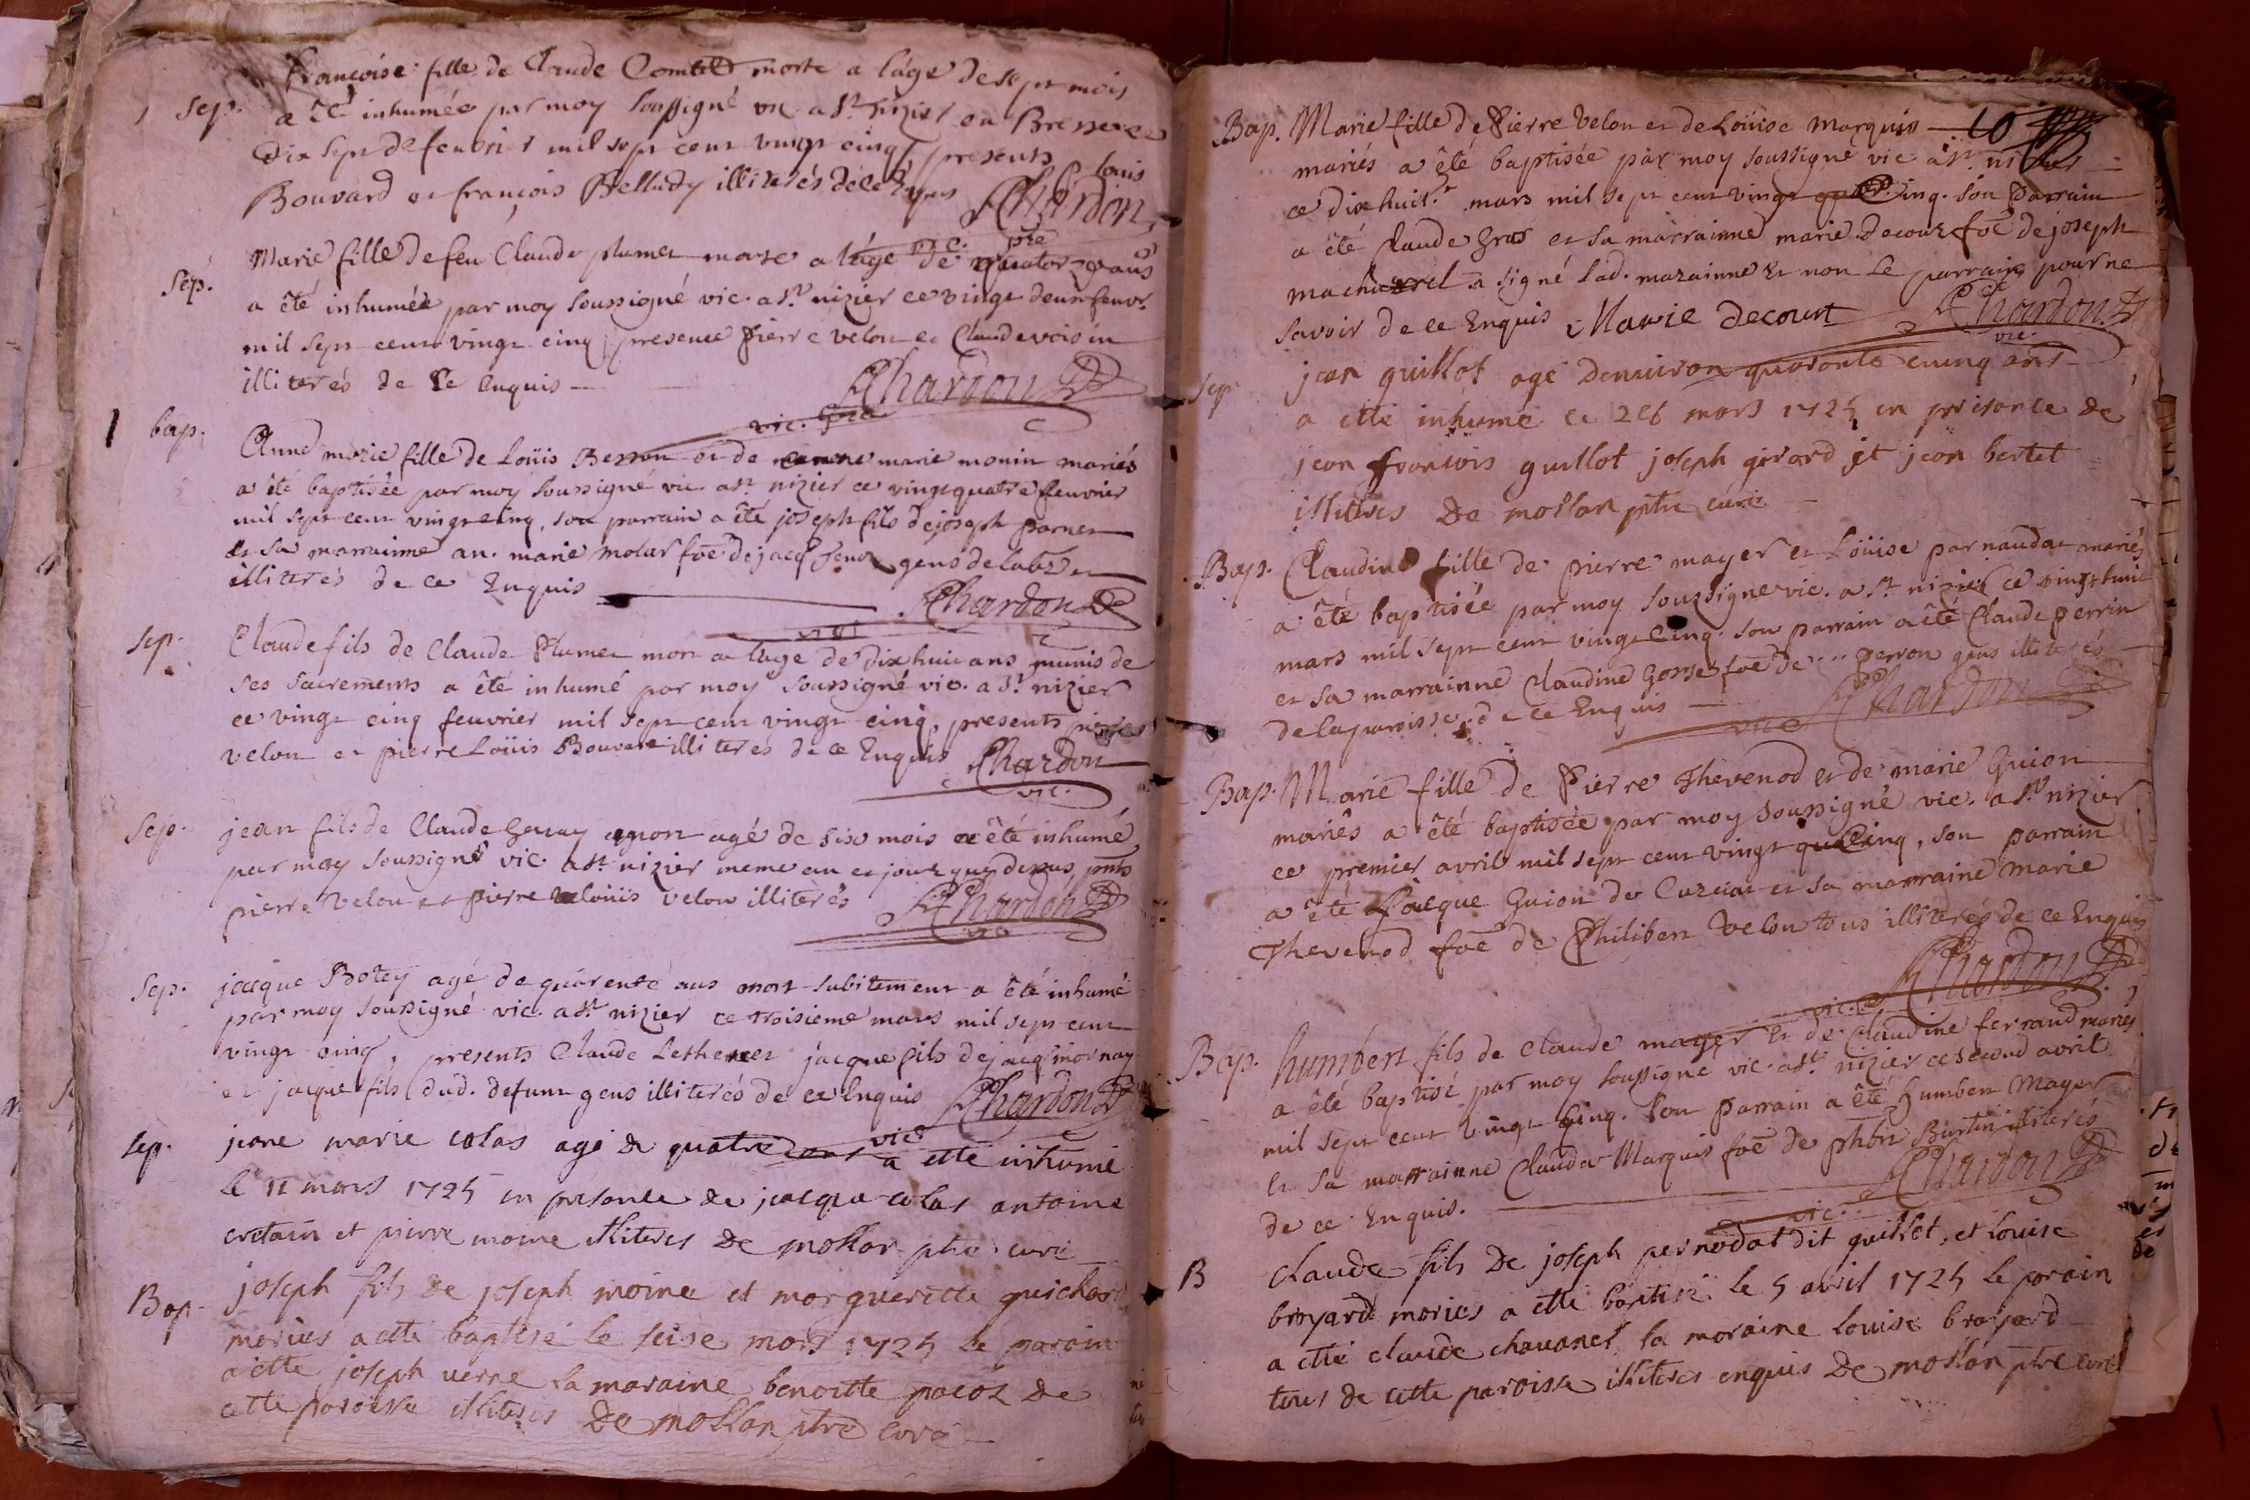 Françoise fille de Claude morte a l'áge de sept mois
Sep. a êté inhumée par moy soussigné vic. a St. nizier en Bresse ce
Dix sept de feuvrier mil sept cent vingt cinq presents Louis
Bouvard et françois illiterés de ce Enquis Chardon
ptre vic.
Sep. Marie fille de feu Claude plumet morte a l'áge de quatorze ans
a été inhumée par moy soussigné vic. a St. nizier ce vingt deux feuvr.
mil sept cent vingt cinq, presence pierre velon et Claude voisin
illiterés de ce Enquis Chardon
vic.
bap. Anne marie fille de Loüis et de marie monin mariés
a êté baptisée par moy soussigné vic. a St. nizier ce vingt quatre feuvrier
mil sept cent vingt cinq, son parrain a êté joseph fils de joseph
et sa marrainne an. marie molas foe de jacq gens de
illiterés de ce Enquis Chardon
vic.
Sep. Claude fils de Claude Plumet mort a l'age de dix huit ans munis de
ses sacrements a êté inhumé par moy soussigné vic. a St. nizier
ce vingt cinq feuvrier mil sept cent vingt cinq, presents pierre
velon et pierre Loüis Bouvard illiterés de ce Enquis Chardon
vic.
Sep. jean fils de Claude agé de six mois a êté inhumé
par moy soussigné vic. a St. nizier meme an et jour que dessus, pnts
pierre velon et pierre loüis velon illiterés Chardon
vic.
Sep. jacque Botey agé de quarente ans mort subitement a êté inhumé
par moy soussigné vic. a St. nizier ce troisieme mars mil sept cent
vingt cinq, presents Claude jacque fils de jacq mornay
et jacque fils dud. defunt gens illiterés de ce Enquis Chardon
vic.
sep. jeane marie colas agé de quatre ans a etté inhumé
le 11 mars 1725 en presance de jacque colas antoine
cretain et pierre moine illiteres De mollan ptre curé
Bap. joseph fils de joseph moine et margueritte guichard
mariés a etté baptisé le seise mars 1725 le parain
a etté joseph verne la maraine benoitte pacoz de
cette paroisse illiteres De mollan ptre curé
Bap. Marie fille de Pierre velon et de Loüise marquis 10
mariés a été baptisée par moy soussigné vic a St.
ce dix huit mars mil sept cent vingt cinq. son Parrain
a été Claude gras et sa marrainne marie decour foe de joseph
machurel a signé lad. marainne et non le parrain pour ne
savoir de ce Enquis Marie decourt Chardon
vic.
Sep. jean guillot agé denviron quarante cinq ans
a etté inhumé ce 26 mars 1725 en presance de
jean françois guillot joseph girard et jean bertet
illiteres De mollan ptre curé
Bap. Claudine fille de pierre mayer et Loüise parnaudat mariés
a été baptisée par moy soussigné vic. a St. nizier ce vingt huit
mars mil sept cent vingt cinq. son parrain a êté Claude perrin
et sa marrainne Claudine Gosse foe de .... perron gens illiterés
de la paroisse de ce Enquis Chardon
vic
Bap. Marie fille de Pierre Thevenod et de marie Guion
mariés a été baptisée par moy soussigné vic. a St. nizier
ce premier avril mil sept cent vingt cinq, son parrain
a êté Jacque Guion de Curciat et sa marraine marie
Thevenod foe de Philibert velon tous illiterés de ce Enquis
Chardon
vic.
Bap. humbert fils de claude mayer et de Claudine ferrand mariés
a été baptisé par moy soussigné vic. a St. nizier ce second avril
mil sept cent vingt cinq. son Parrain a êté humbert Mayer
et sa marrainne Claudae Marquis foe de phbrt Burtin illiterés
de ce Enquis. Chardon
vic.
B claude fils de joseph pernodat dit guillot, et louise
broyard mariés a etté baptisé le 5 avril 1725 le parain
a etté claude chavanel la maraine louise broyard
tous de cette paroisse illiteres enquis De mollan ptre curé